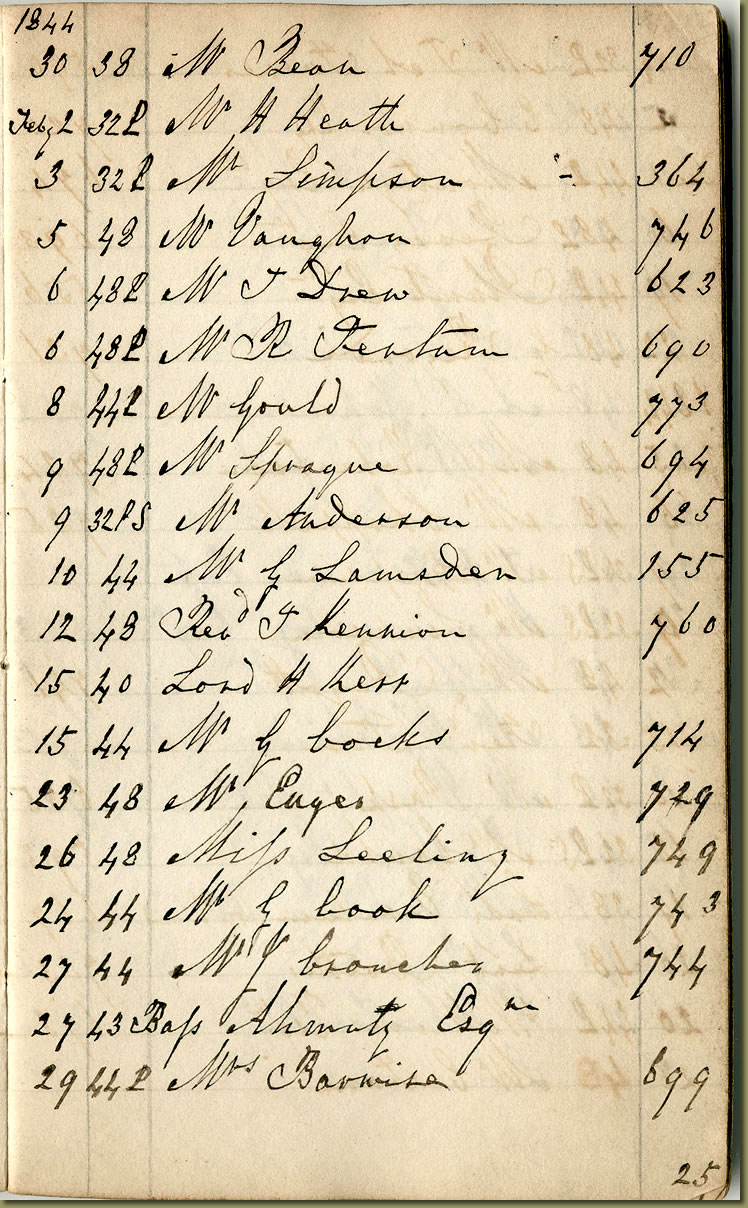 1844
30 38 Mr Bean 710
Feby 2 32P Mr H Heath
3 32P Mr Simpson - 364
5 48 Mr Vaughan 746
6 48P Mr T Drew 623
6 48P Mr R Fentum 690
8 44P Mr Gould 773
9 48P Mr Sprague 694
9 32PS Mr Anderson 625
10 44 Mr G Lamsden 155
12 48 Revd T Kennion 760
15 40 Lord H Kerr
15 44 Mr G Cocks 714
23 48 Mr 729
26 48 Miss Leeling 749
24 44 Mr G Cook 743
27 44 Mr J 744
27 43 Bass Ahmuty Esqre
29 44P Mrs Barwise 699
25